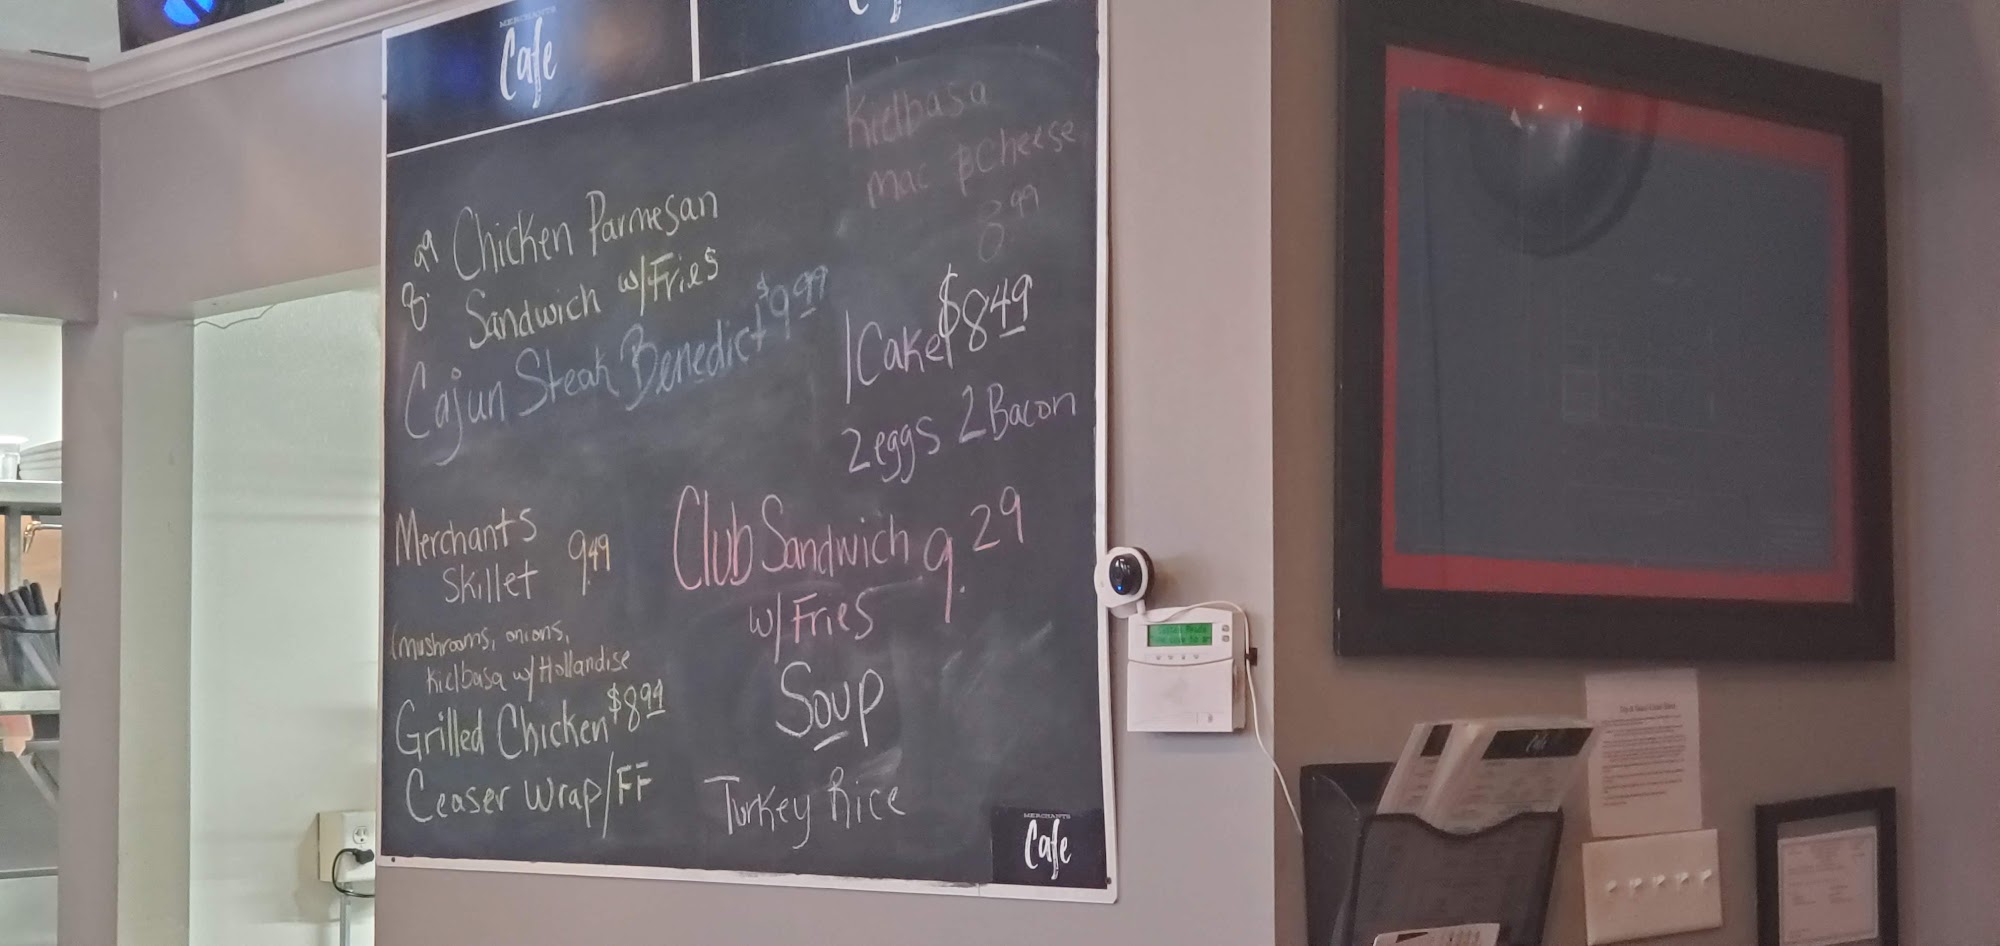 MERCHANTS
Cafe
Kielbasa
mac & Cheese
8.99
8.99 Chicken Parmesan
Sandwich w/Fries
Cajun Steak Benedict $9.99
1 Cake $8.49
2 eggs 2 Bacon
Merchants
Skillet 9.49
(mushrooms, onions,
Kielbasa w/Hollandise
Grilled Chicken $8.99
Ceaser Wrap/FF
Club Sandwich 9.29
w/Fries
Soup
Turkey Rice
MERCHANTS
Cafe
Cafe